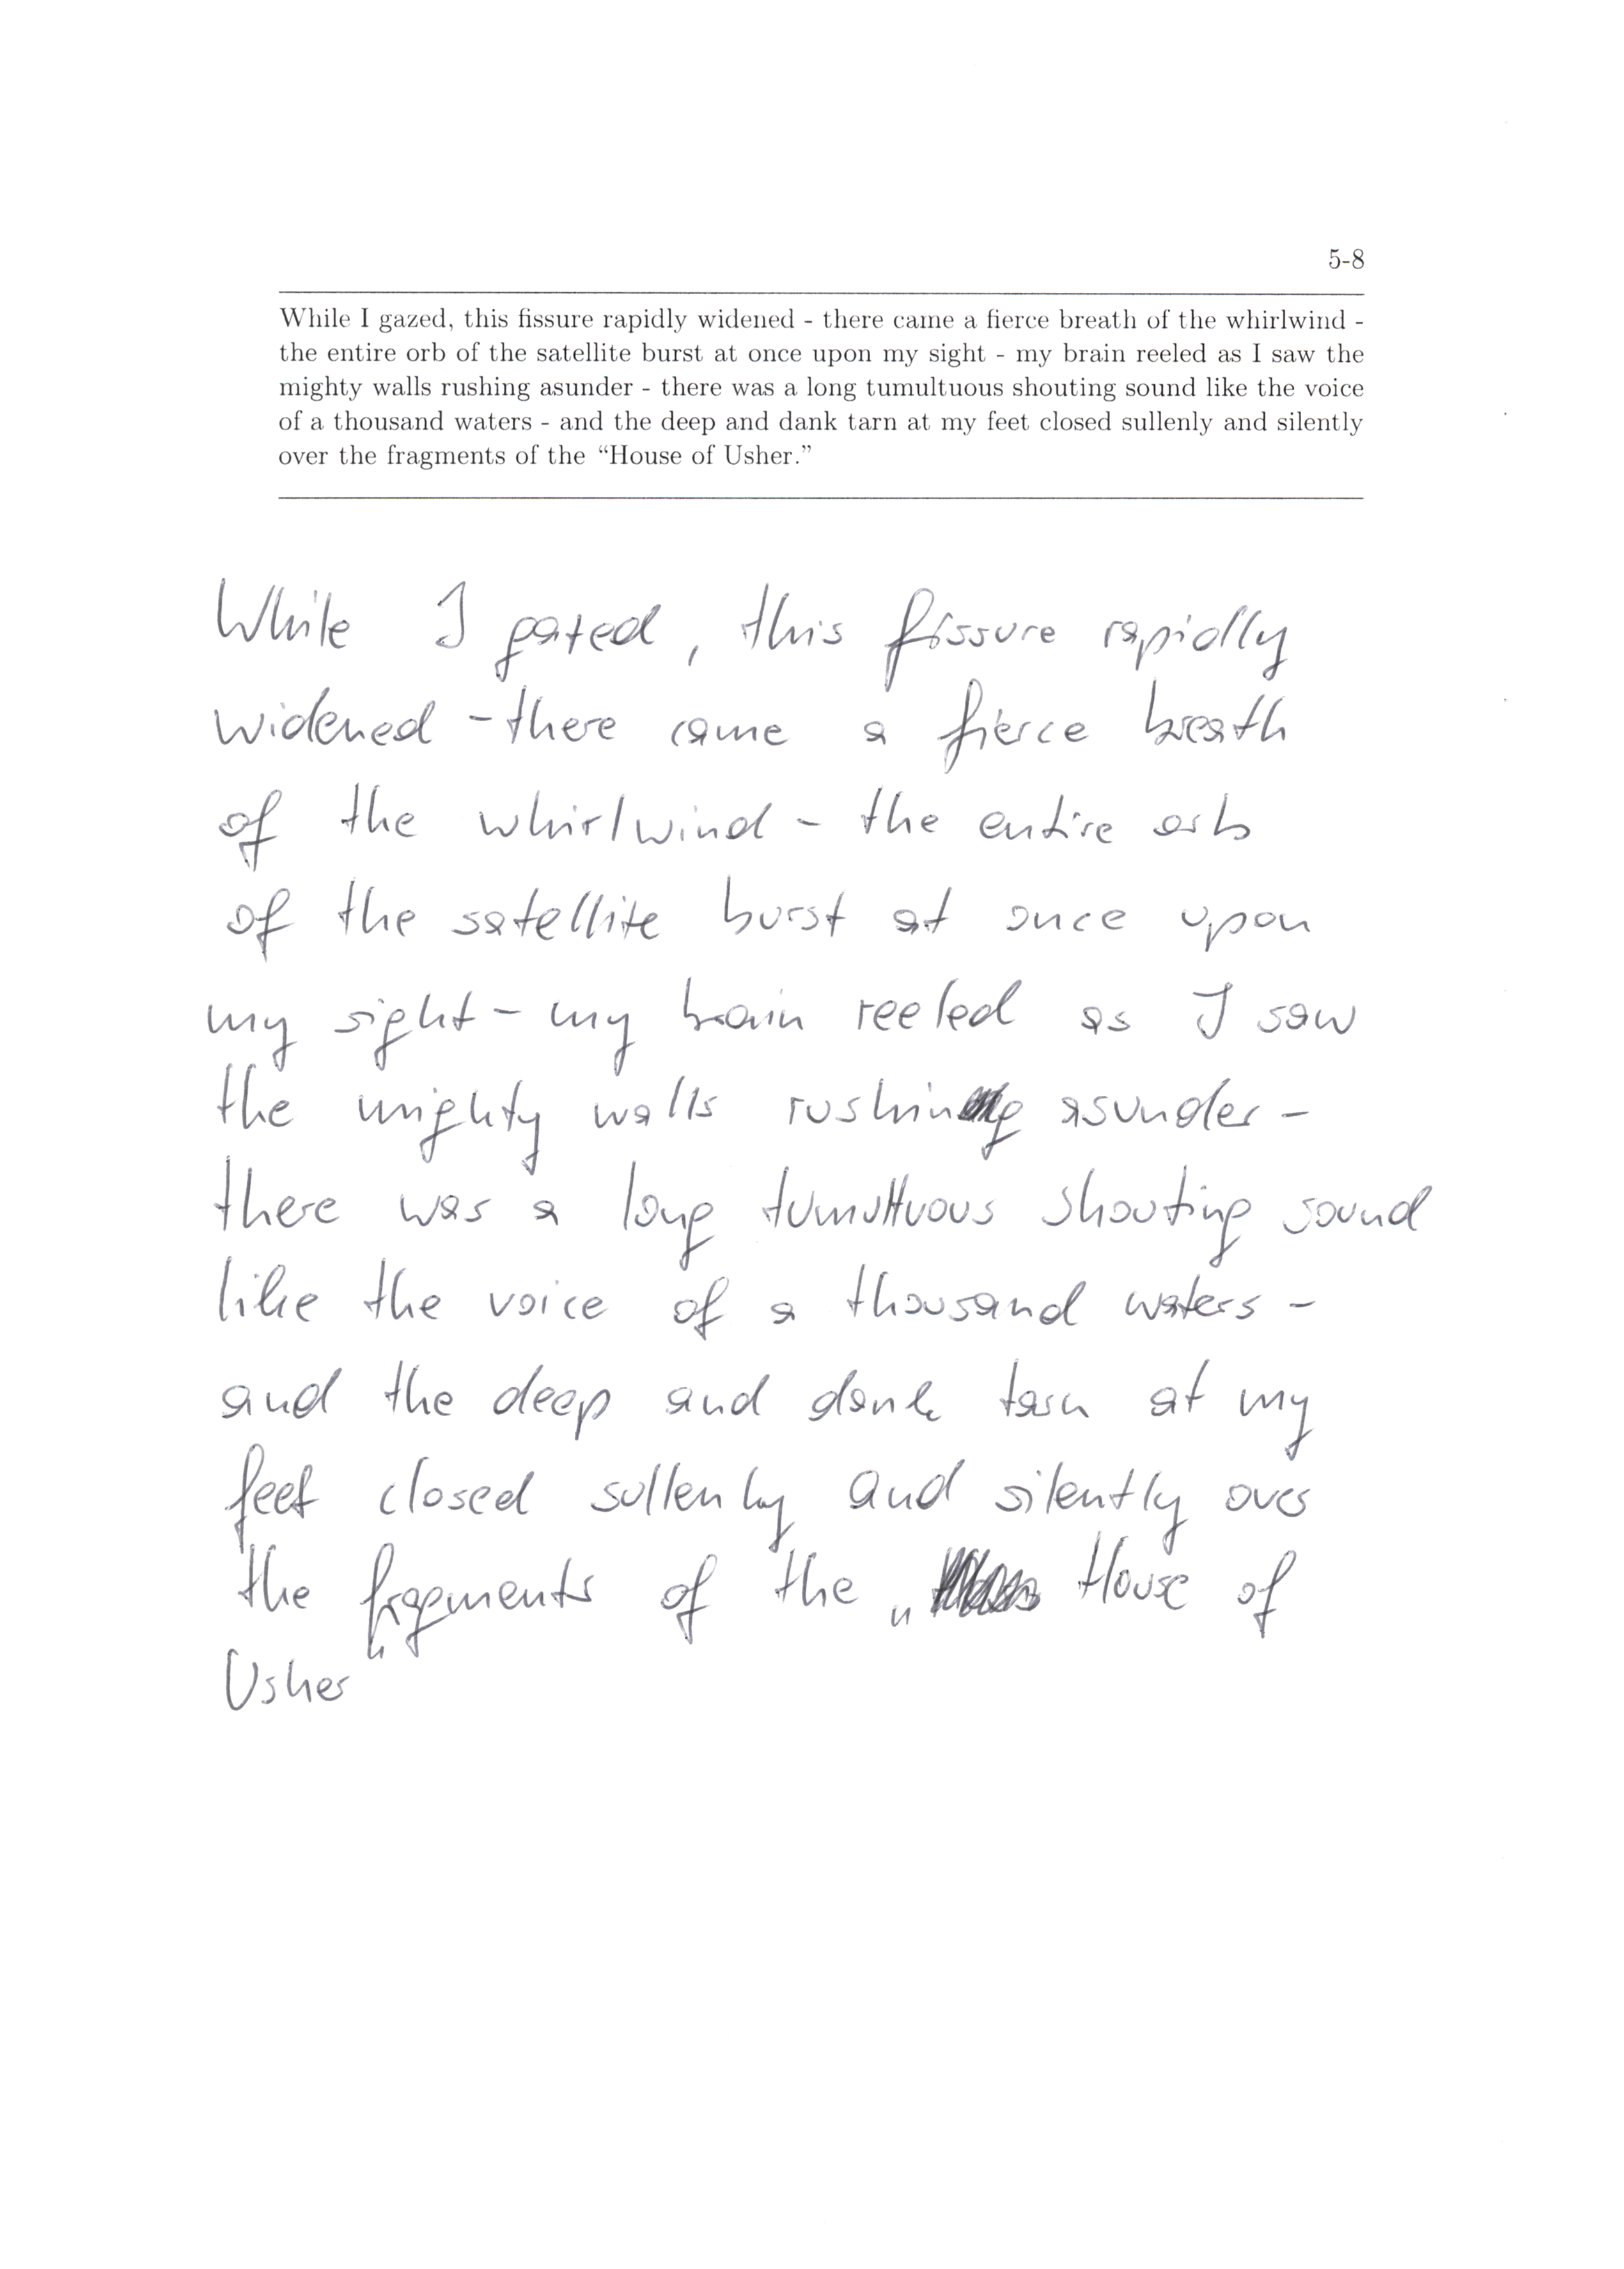 5-8
While I gazed, this fissure rapidly widened - there came a fierce breath of the whirlwind -
the entire orb of the satellite burst at once upon my sight - my brain reeled as I saw the
mighty walls rushing asunder - there was a long tumultuous shouting sound like the voice
of a thousand waters - and the deep and dank tarn at my feet closed sullenly and silently
over the fragments of the “House of Usher.”
While I gazed, this fissure rapidly
widened - there came a fierce breath
of the whirlwind - the entire orb
of the satellite burst at once upon
my sight - my brain reeled as I saw
the mighty walls rushing asunder -
there was a long tumultuous shouting sound
like the voice of a thousand waters -
and the deep and dank tarn at my
feet closed sullenly and silently over
the fragments of the „ House of
Usher“